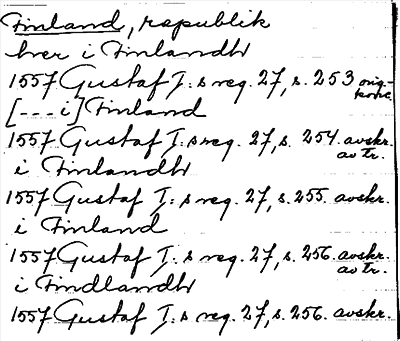 Finland, republik
hver i Finlandh
1557 Gustaf I:s reg. 27, s. 253 orig.-
konc.
[---i] Finland
1557 Gustaf I:s reg. 27, s. 254. avskr.
av tr.
i Finlandh
1557 Gustaf I:s reg. 27, s. 255. avskr.
i Finland
1557 Gustaf I:s reg. 27, s. 256. avskr.
av tr.
i Findlandh
1557 Gustaf I:s reg. 27, s. 256. avskr.